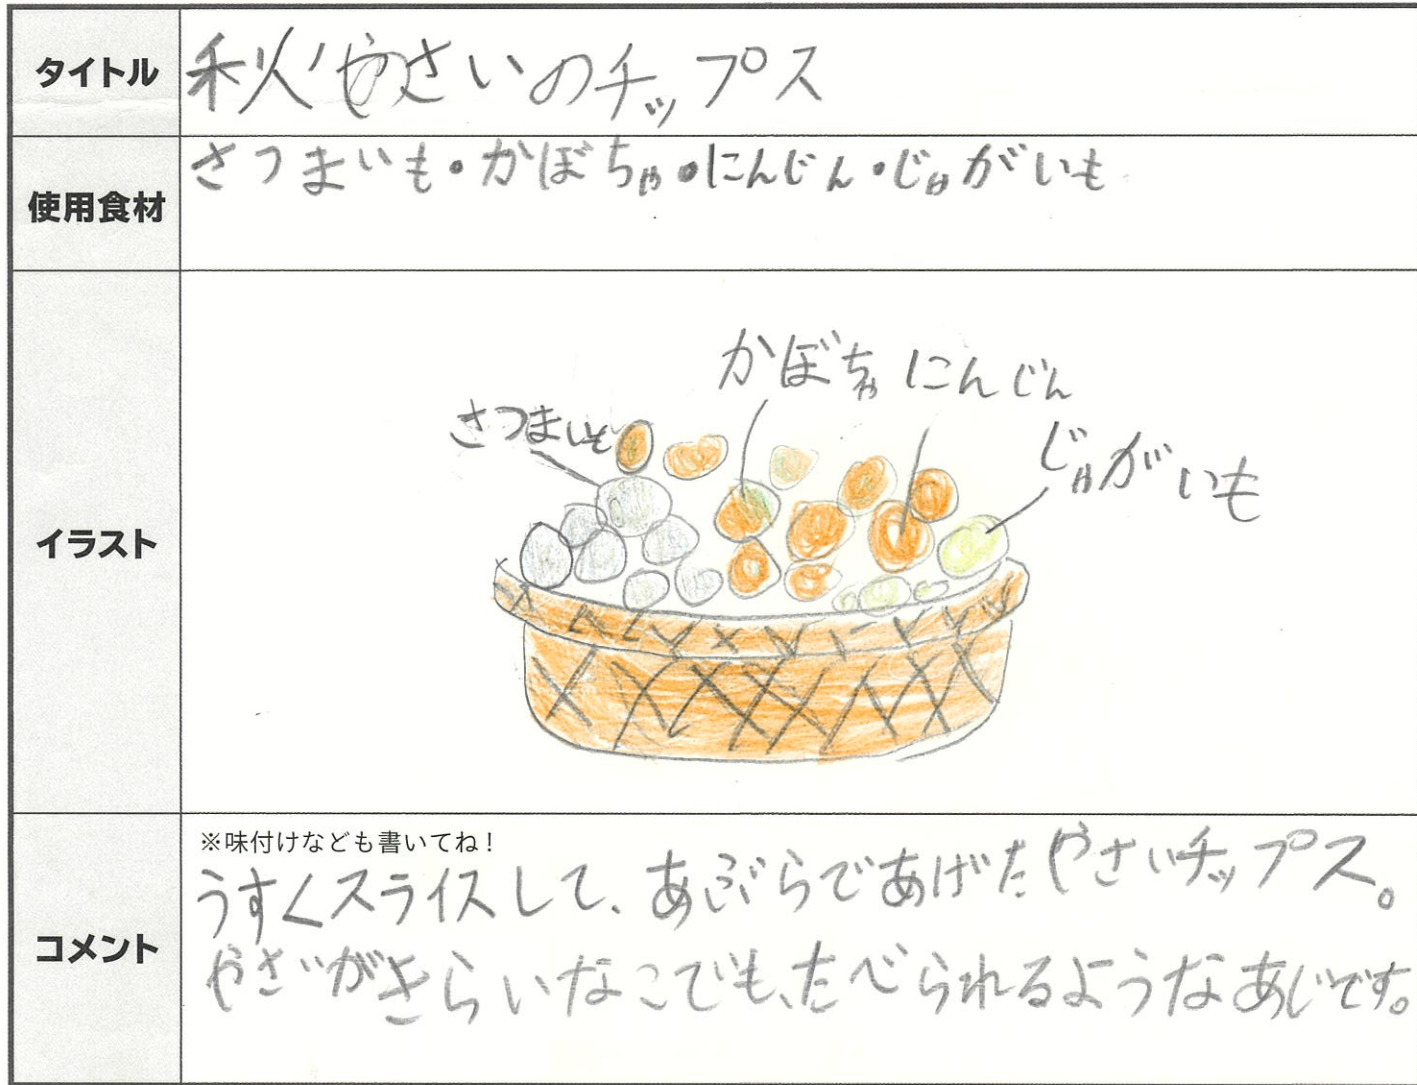 タイトル
秋やさいのチップス
使用食材
さつまいも・かぼちゃ・にんじん・じゃがいも
イラスト
かぼちゃ にんじん
さつまいも
じゃがいも
コメント
※味付けなども書いてね!
うすくスライスして、あぶらであげたやさいチップス。
やさいがきらいなこでも、たべられるようなあじです。